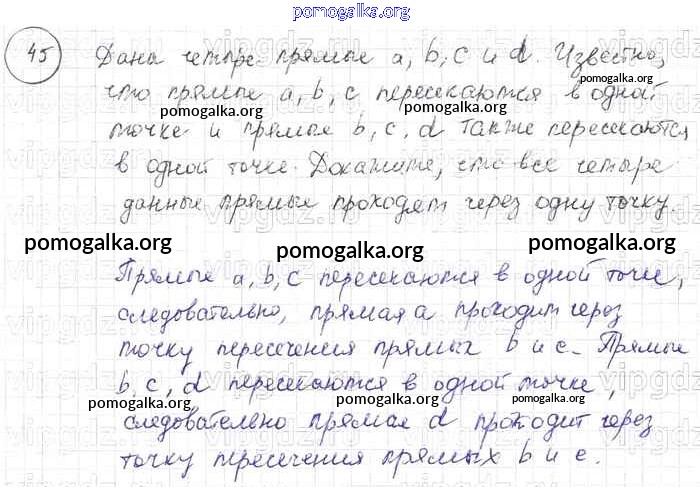 pomogalka.org
45 Дана четыре прямые a, b, c и d. Известно,
pomogalka.org
что прямые a, b, c пересекаются в одной
pomogalka.org
точке и прямые b, c, d также пересекаются
pomogalka.org
в одной точке. Докажите, что все четыре
данные прямые проходят через одну точку
pomogalka.org pomogalka.org pomogalka.org
Прямые a, b, c пересекаются в одной точке,
следовательно, прямая a проходит через
точку пересечения прямых b и c. Прямые
b, c, d пересекаются в одной точке,
pomogalka.org pomogalka.org
следовательно прямая d проходит через
точку пересечения прямых b и c.